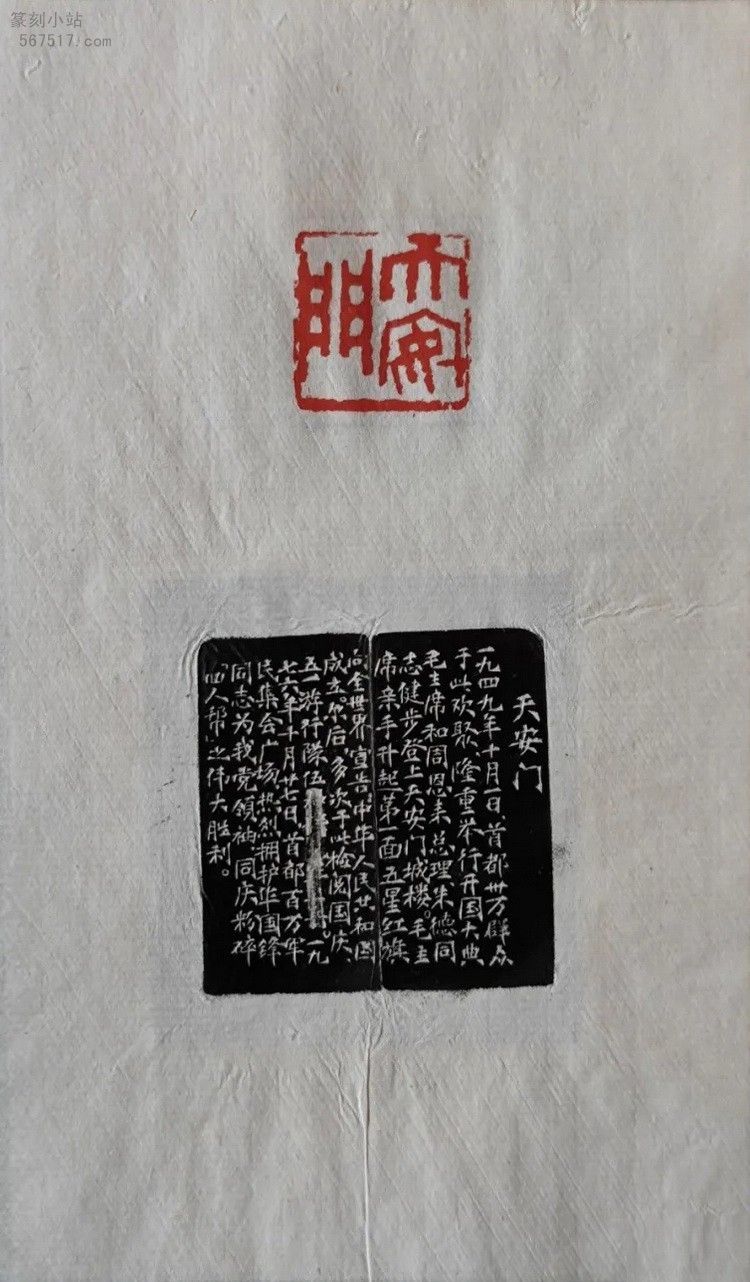 篆刻小站
567517.com
天安門
天安门
一九四九年十月一日,首都卅万群众
于此欢聚,隆重举行开国大典,
毛主席和周恩来总理朱德同
志健步登上天安门城楼。毛主
席亲手升起第一面五星红旗
向全世界宣告,中华人民共和国
成立。尔后,多次于此检阅国庆、
五一游行隊伍。一九
七六年十月廿七日,首都百万军
民集会广场,热烈拥护华国锋
同志为我党領袖,同庆粉碎
“四人帮”之伟大胜利。